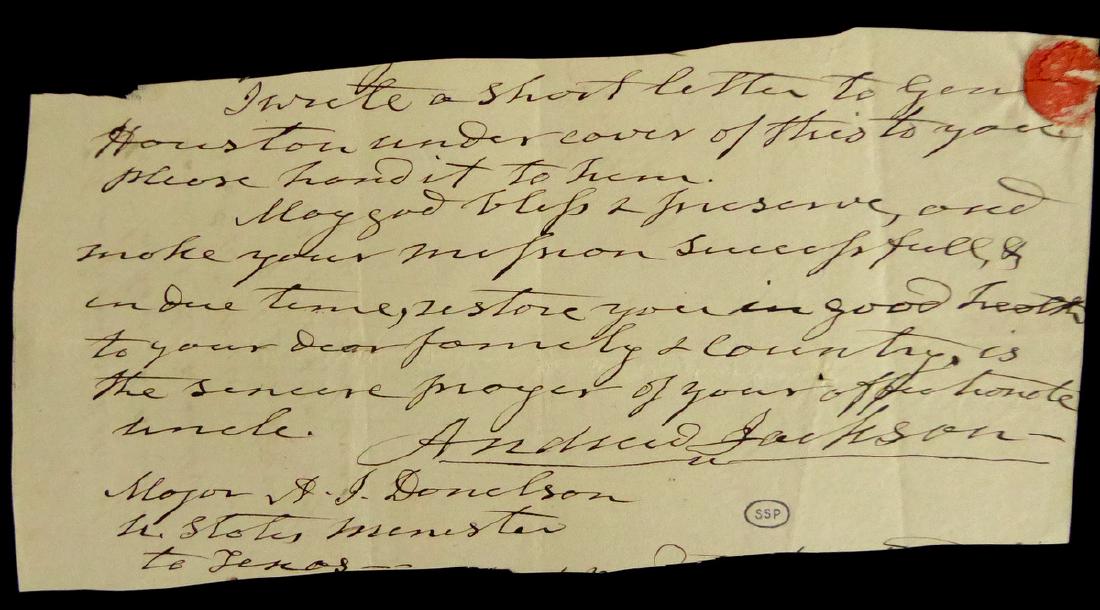 I write a short letter to Gen
Houston under cover of this to you
please hand it to him.
May god bless & preserve, and
make your mission successfull, &
in due time, restore you in good health
to your dear family & Country, is
the sincere prayer of your affectionate
uncle.
Andrew Jackson
Major A. J. Donelson
U. States Minister
to Texas—
SSP